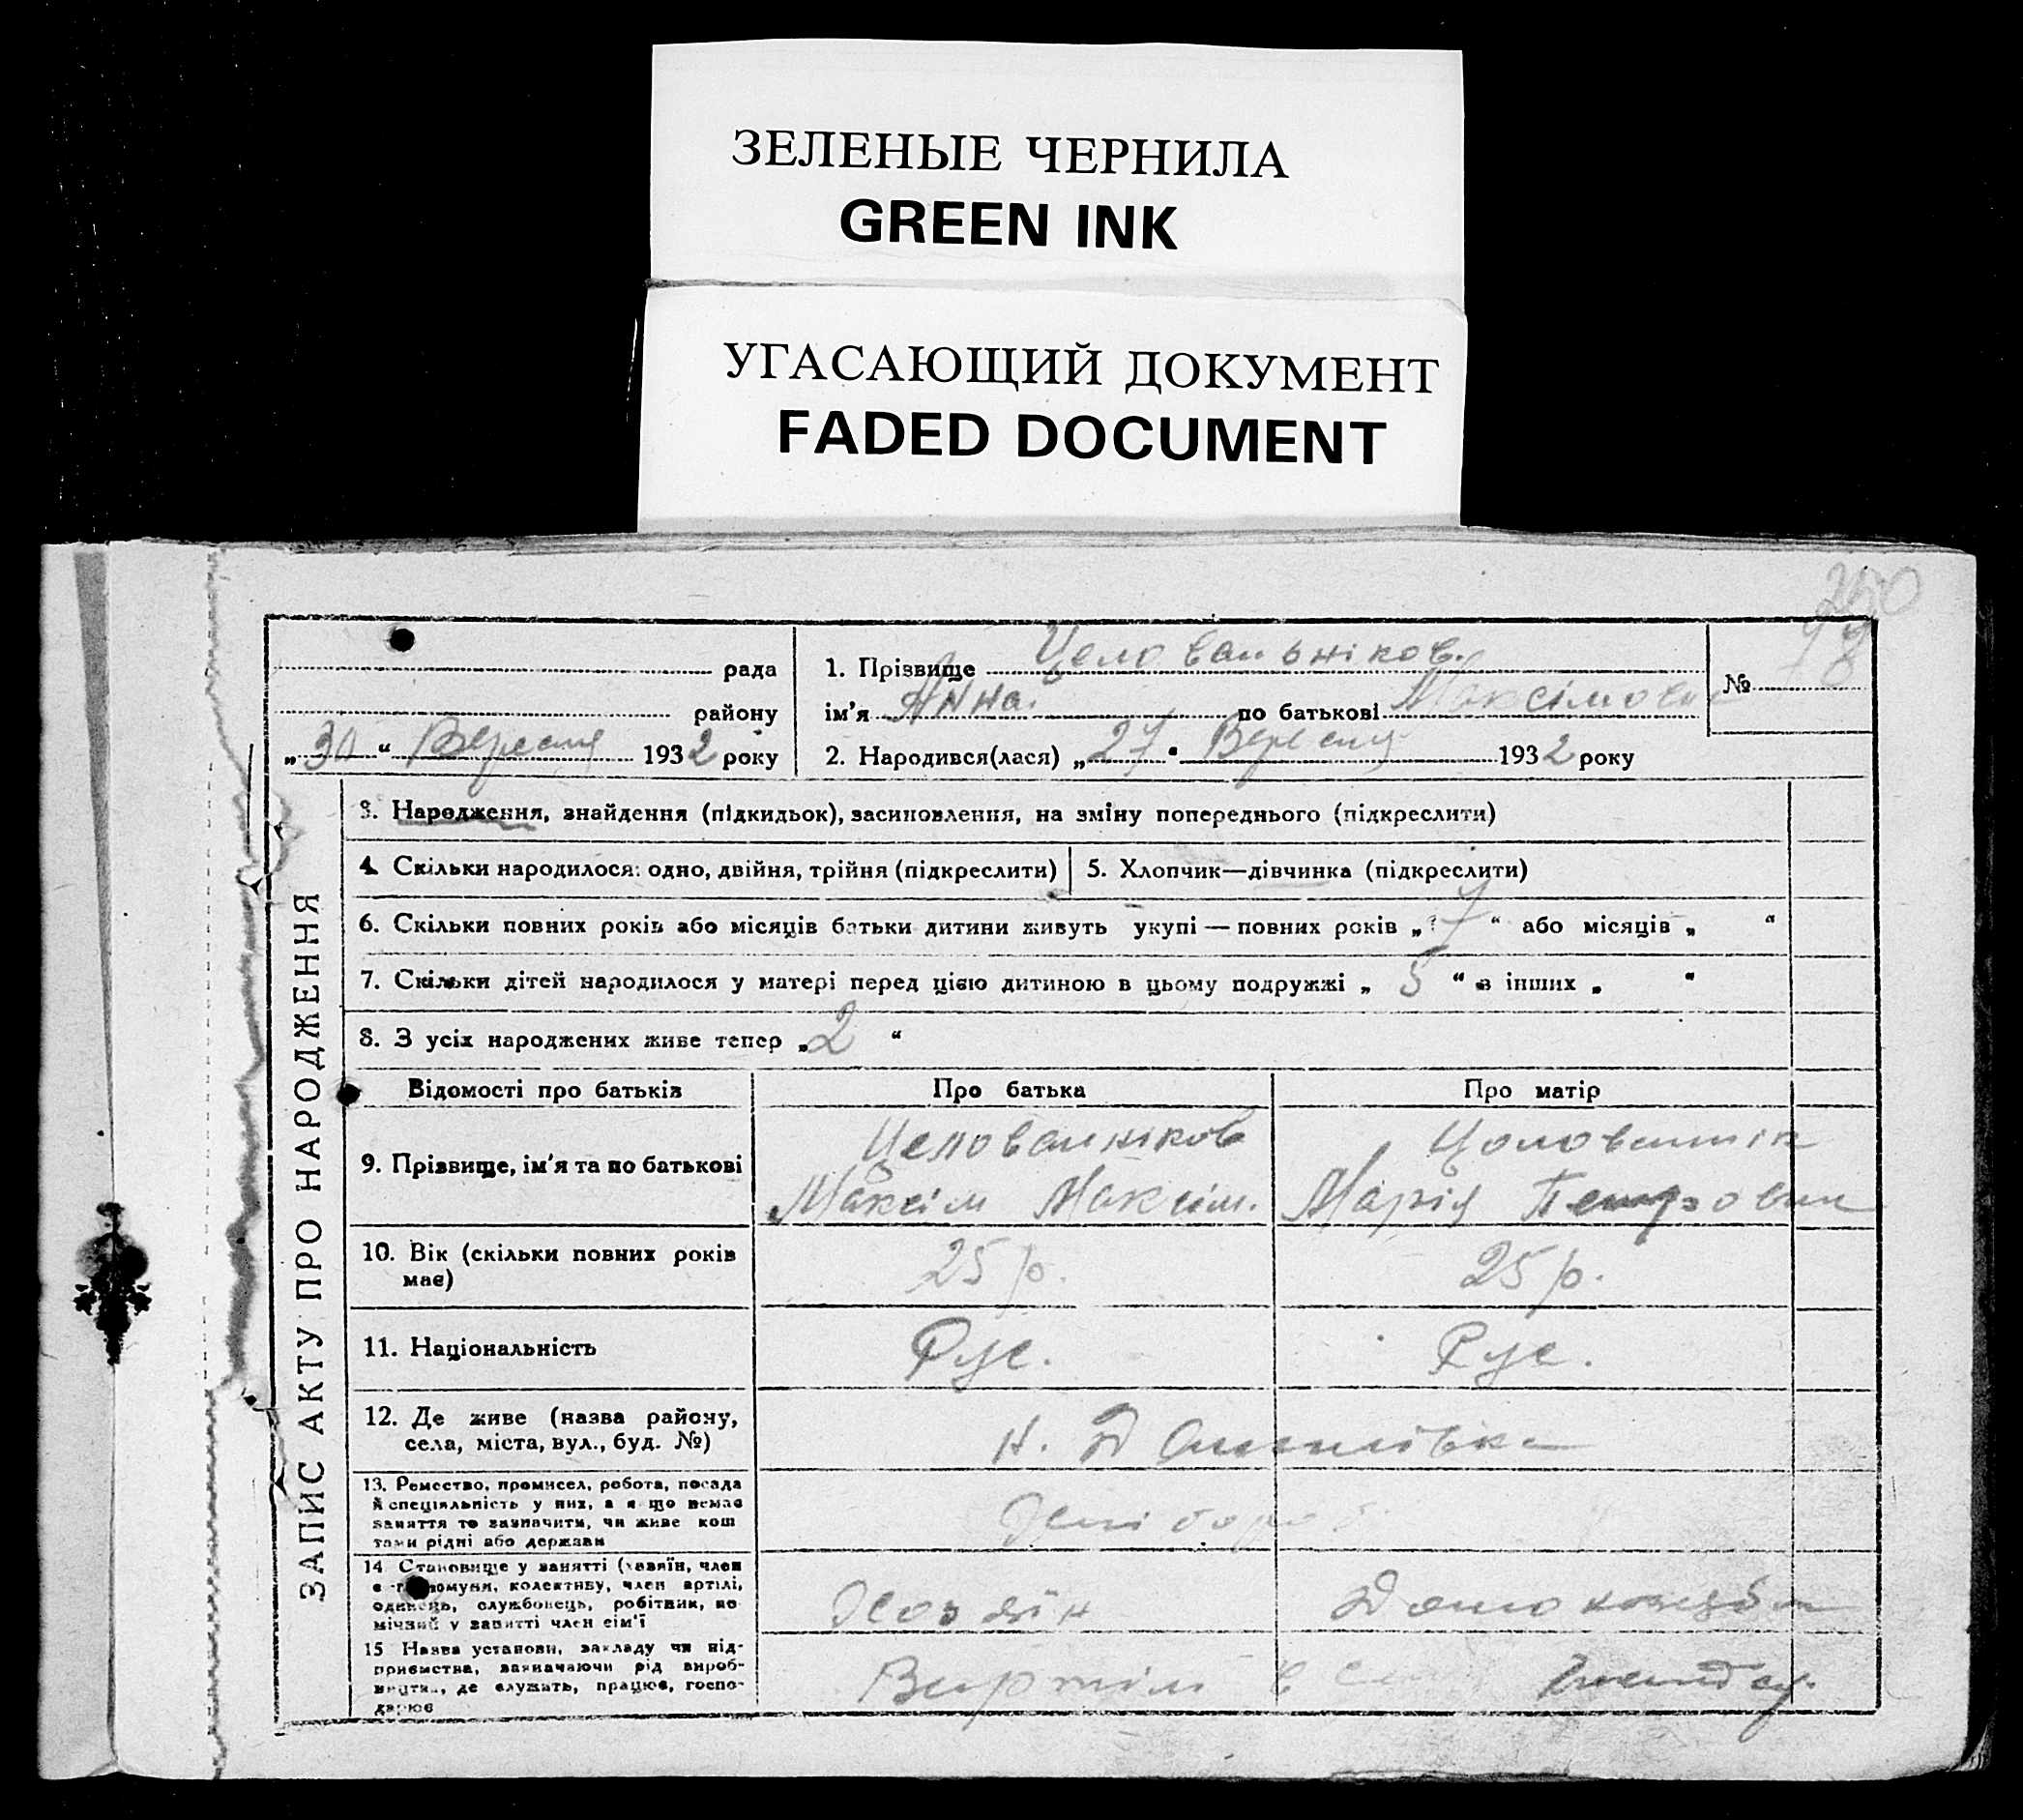 ЗЕЛЕНЫЕ ЧЕРНИЛА
GREEN INK
УГАСАЮЩИЙ ДОКУМЕНТ
FADED DOCUMENT
рада
району
„30“ Вересня 1932 року
1. Прізвище Целовальніков.
ім'я Анна. по батькові Максімовна
2. Народився(лася) „27“ Вересня 1932 року
№ 98
ЗАПИС АКТУ ПРО НАРОДЖЕННЯ
3. Народження, знайдення (підкидьок), засиновлення, на зміну попереднього (підкреслити)
4. Скільки народилося: одно, двійня, трійня (підкреслити)
5. Хлопчик—дівчинка (підкреслити)
6. Скільки повних років або місяців батьки дитини живуть укупі — повних років „7“ або місяців „ “
7. Скільки дітей народилося у матері перед цією дитиною в цьому подружжі „5“ в інших „ “
8. З усіх народжених живе тепер „2“
Відомості про батьків
Про батька
Про матір
9. Прізвище, ім'я та по батькові
Целованіков
Максім Максім.
Марія Петровн
10. Вік (скільки повних років має)
25 р.
25 р.
11. Національність
Рус.
Рус.
12. Де живе (назва району,
села, міста, вул., буд. №)
Н.
13. Ремество, промисел, робота, посада
й спеціяльність у них, а якщо немає
заняття то зазначити, чи живе кош
тами рідні або держави
14 Становище у занятті (хазяїн, член
колективу, член артілі,
одинець, службовець, робітник, по
мічний у занятті член сім'ї
Хозяїн
15 Назва установи, закладу чи під-
приємства, зазначаючи рід вироб-
ництва, де служить, працює, госпо-
дарює